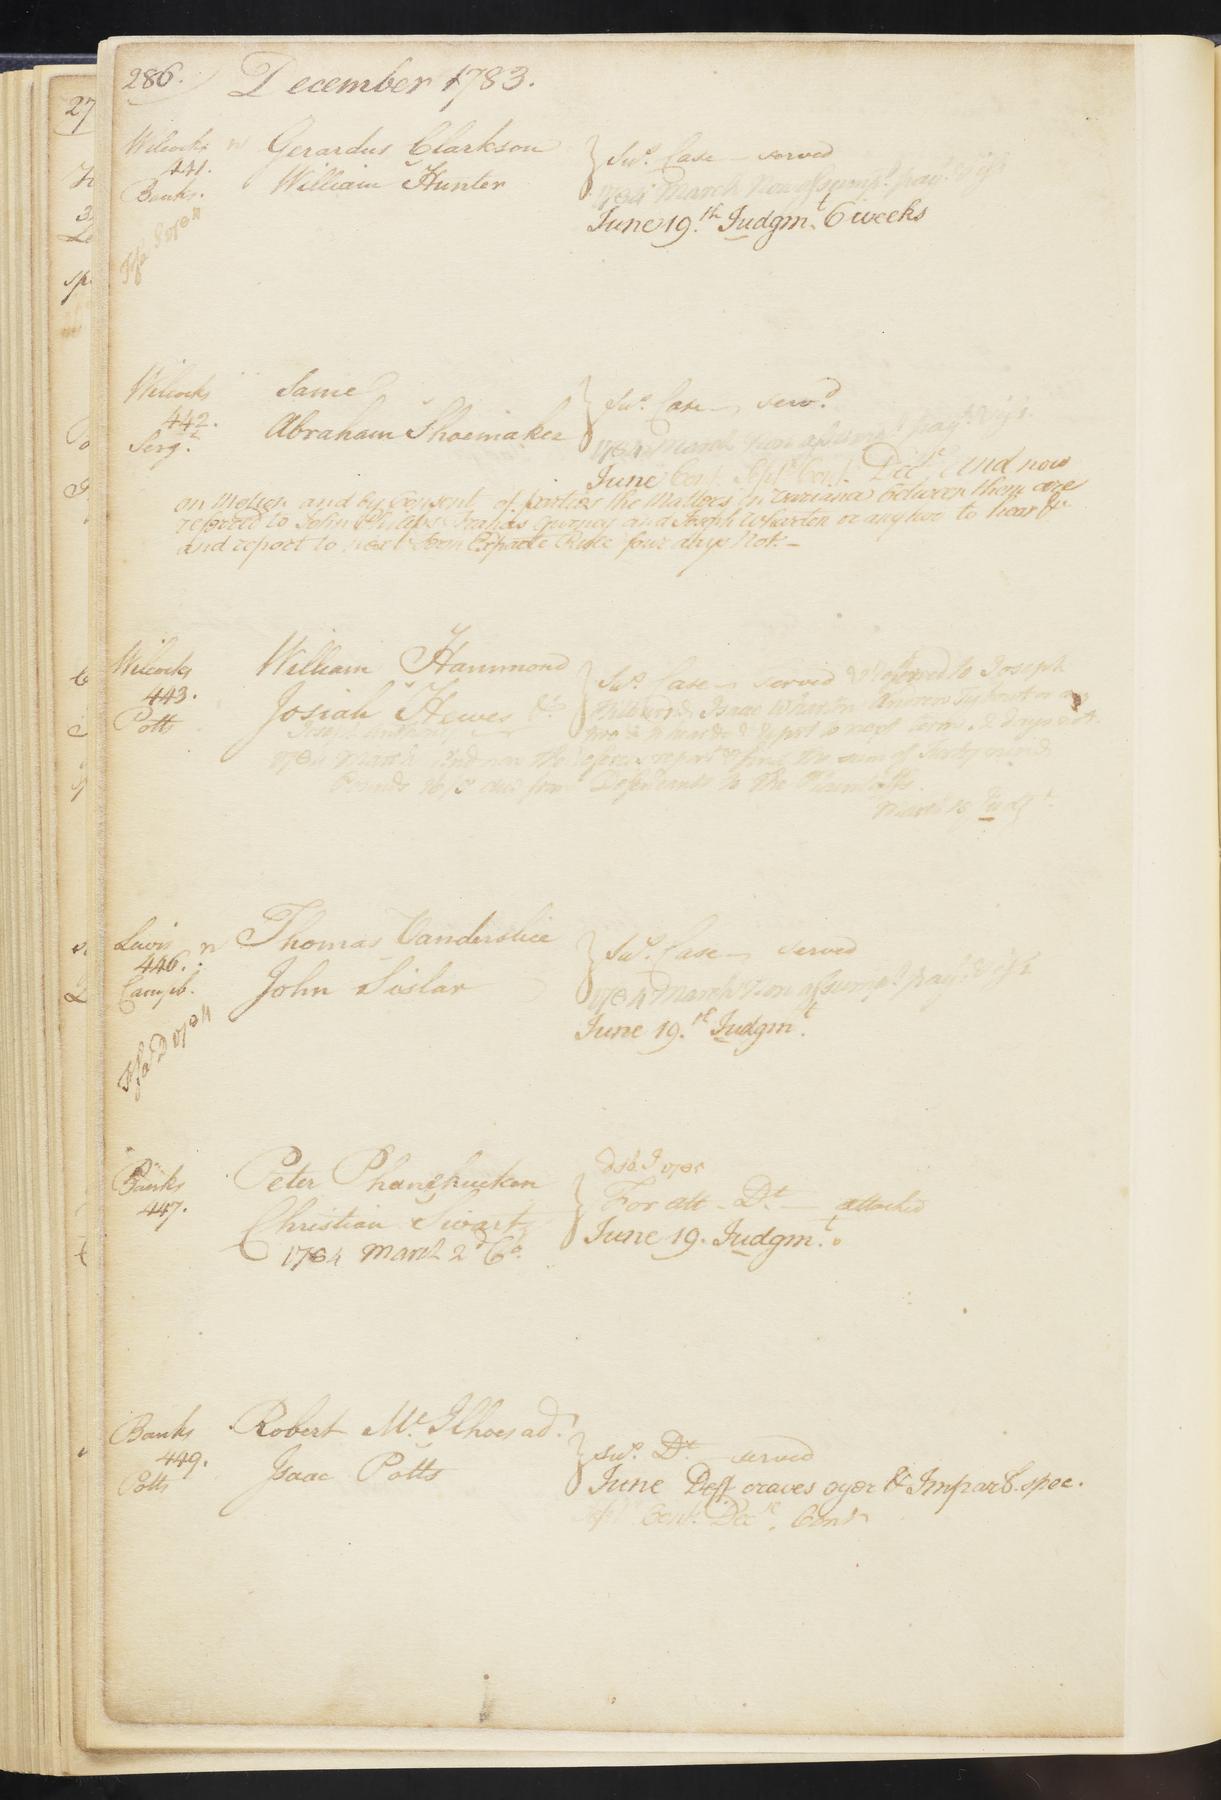 286.
December 1783.
Wilcocks n Gerardus Clarkson
441. v
Banks. William Hunter
Sums. Case — served
1784 March Non assumpt. paymt. & Iss
June 19.th Judgmt. 6 weeks
Wilcocks Same
442. v
Serg.t Abraham Shoemaker
Sums. Case — serv.d
1784 March Non assumpt. paymt. & Iss.
June Cont. Sept.r Cont. Dec.r And now
on Motion and by Consent of parties the Matters in variance between them are
referred to John Philips Francis Gurney and Joseph Wharton or any two to hear &c
and report to next Term Exparte Rule four days Not. —
Wilcocks William Hammond
443. v
Potts Josiah Hewes &
Joseph Anthony
Sums. Case — served & Referred to Joseph
Isaac Wharton Andrew Tybout or any
two report to next term. 2 days not.
1784 March And now the referees report & find the sum of Sixty nine
Pounds 16/3 due from Defendants to the Plaintiffs.
March 18 Judgt.
Lewis n Thomas Vanderslice
446. v
Campb. John Sislar
Sums. Case — served
1784 March Non assumpt. paymt. & Iss
June 19.th Judgmt.
Banks Peter Phanzhucken
447. v
Christian Swart
1784 March 2d Co.
For att — Dt. — attached
June 19. Judgmt.
Banks Robert Mc. Ilhoesad.
449. v
Potts Isaac Potts
Sums. Dt. — served
June Deft. craves oyer & Imparl. spec.
Cont. Dec.r Cont.